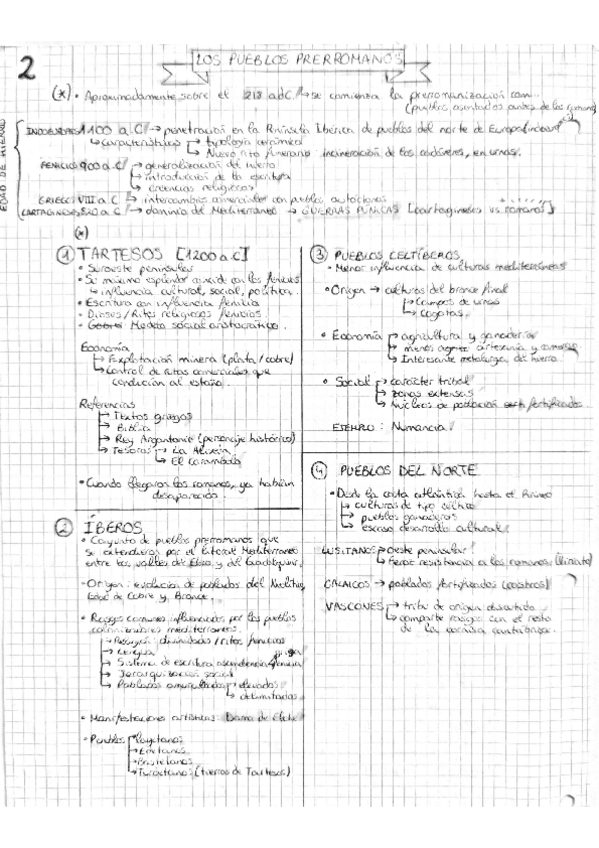 2
LOS PUEBLOS PRERROMANOS
(*) • Aproximadamente sobre el 218 a.d.C. → se comienza la prerromanización con...
(pueblos asentados antes de los romanos)
EDAD DE HIERRO
INDOEUROPEOS 1100 a.C → penetración en la Península Ibérica de pueblos del norte de Europa
↳ características → tipología cerámica
→ Nuevo rito funerario: incineración de los cadáveres, en urnas.
FENICIOS 900 a.C → generalización del hierro
→ introducción de la escritura
→ creencias religiosas
GRIEGOS VIII a.C → intercambios comerciales con pueblos autóctonos
CARTAGINESES a.C → dominio del Mediterráneo → GUERRAS PÚNICAS [cartagineses vs romanos]
(*)
① TARTESOS [1200 a.C]
• Suroeste peninsular
• Su máximo esplendor coincide con los fenicios
↳ influencia cultural, social, política.
• Escritura con influencia fenicia
• Dioses/Ritos religiosos fenicios
• Modelo social aristocrático.
Economía
↳ Explotación minera (plata/cobre)
↳ Control de rutas comerciales que
conducían al estaño.
Referencias
→ Textos griegos
→ Biblia
→ Rey Argantonio (personaje histórico)
→ Tesoros → La Aliseda
→ El Carambolo
• Cuando llegaron los romanos, ya habían
desaparecido.
② ÍBEROS
• Conjunto de pueblos prerromanos que
se extendieron por el litoral Mediterráneo
entre los valles del Ebro y del Guadalquivir.
• Origen: evolución de poblados del Neolítico,
Edad de Cobre y Bronce.
• Rasgos comunes influenciados por los pueblos
colonizadores mediterráneos.
→ Religión: divinidades/ritos fenicios
→ Lengua
→ Sistema de escritura ascendencia fenicia
→ Jerarquización social
→ Poblados amurallados → elevados
→ delimitados
• Manifestaciones artísticas: Dama de Elche
• Pueblos → Layetanos
→ Edetanos
→ Bastetanos
→ Turdetanos (tierras de Tartesos)
③ PUEBLOS CELTÍBEROS
• Menor influencia de culturas mediterráneas
• Origen → culturas del bronce final
↳ Campos de urnas
↳ Cogotas.
• Economía → agricultura y ganadería
→ menos artesanía y comercio
→ Interesante metalurgia del hierro.
• Social → carácter tribal
→ zonas extensas
→ Núcleos de población fortificados
EJEMPLO: Numancia
④ PUEBLOS DEL NORTE
• Desde la costa atlántica hasta el Pirineo
→ culturas de tipo céltico
→ pueblos ganaderos
→ escaso desarrollo cultural
LUSITANOS → oeste peninsular
↳ feroz resistencia a los romanos (Viriato)
GALAICOS → poblados fortificados (castros)
VASCONES → tribu de origen discutido
↳ comparte rasgos con el resto
de la cornisa cantábrica.